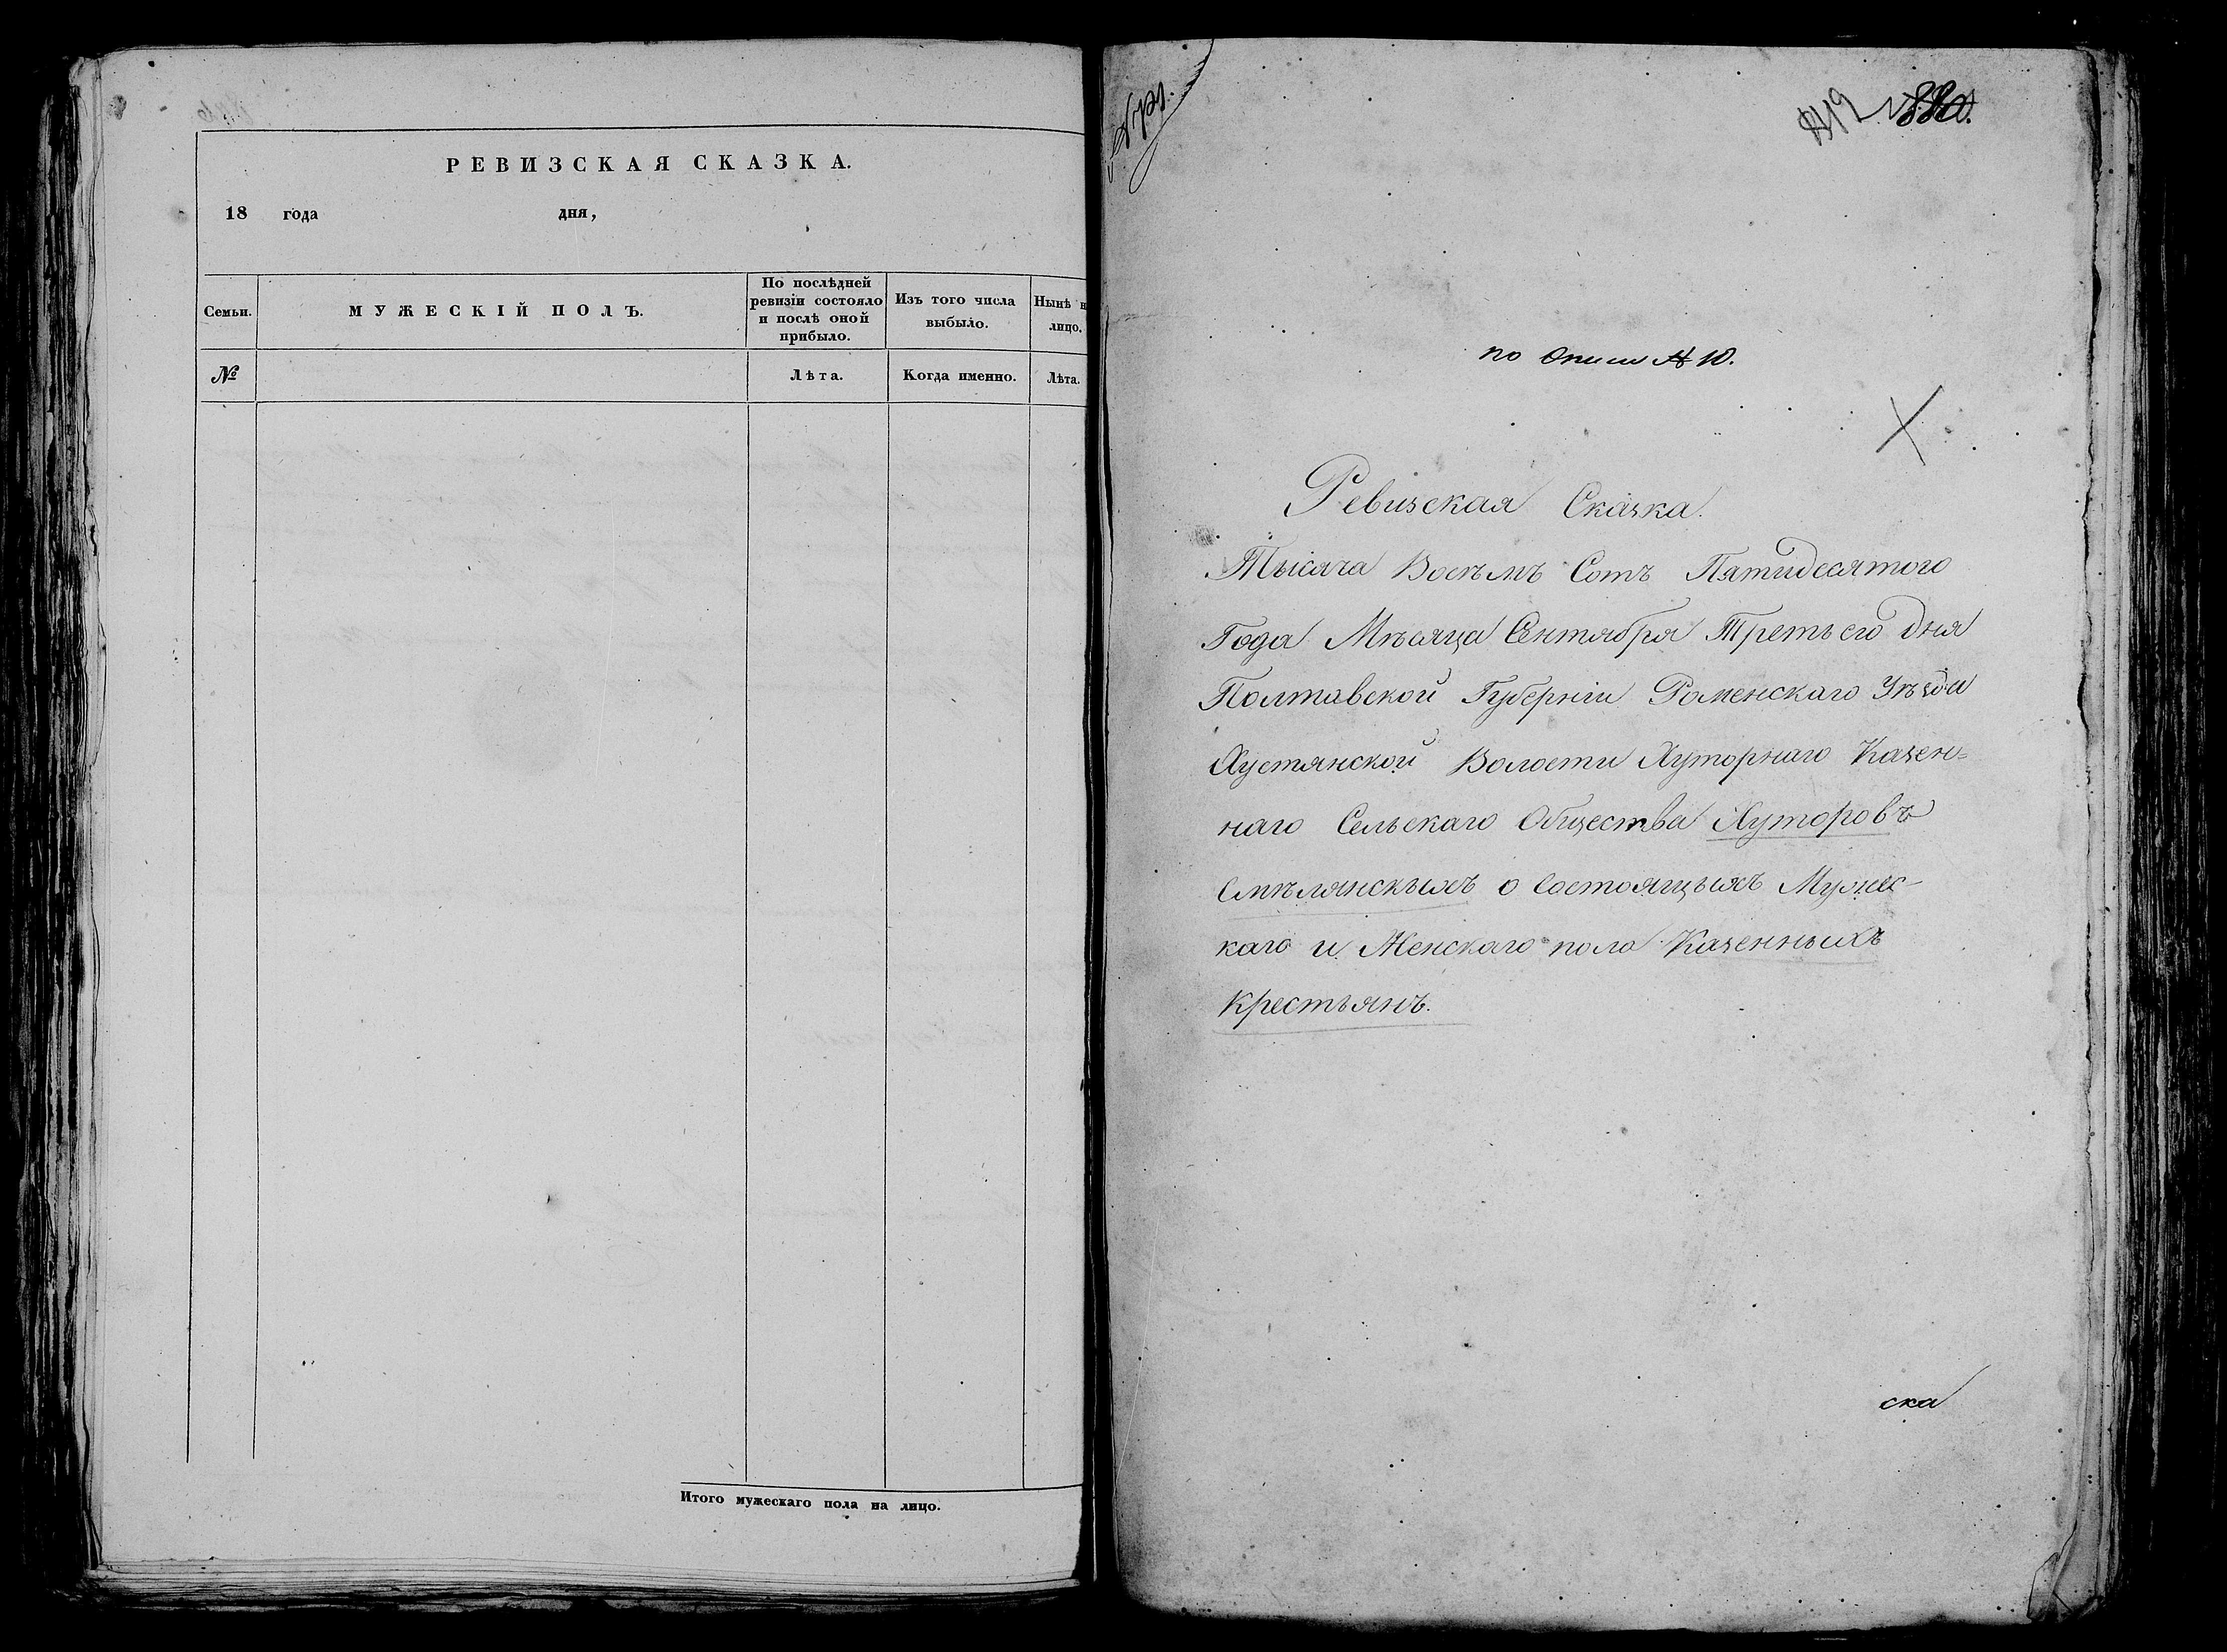 РЕВИЗСКАЯ СКАЗКА.
18 года дня,
Семьи.
МУЖЕСКІЙ ПОЛЪ.
По послѣдней
ревизіи состояло
и послѣ оной
прибыло.
Изъ того числа
выбыло.
Нынѣ н
лицо.
№
Лѣта.
Когда именно.
Лѣта.
Итого мужескаго пола на лицо.
880.
по Описи № 10.
Ревизская Сказка.
Тысяча Восемъ Сотъ Пятидесятого
Года Мѣсяца Сентября Третьего дня
Полтавской Губерніи Роменскаго Уѣзда
Хустянской Волости Хуторнаго Казен=
наго Сельскаго Общества Хуторовъ
Смѣлянскыхъ о Состоящыхъ Мужес-
каго и Женскаго пола Казенныхъ
Крестьянъ.
ска